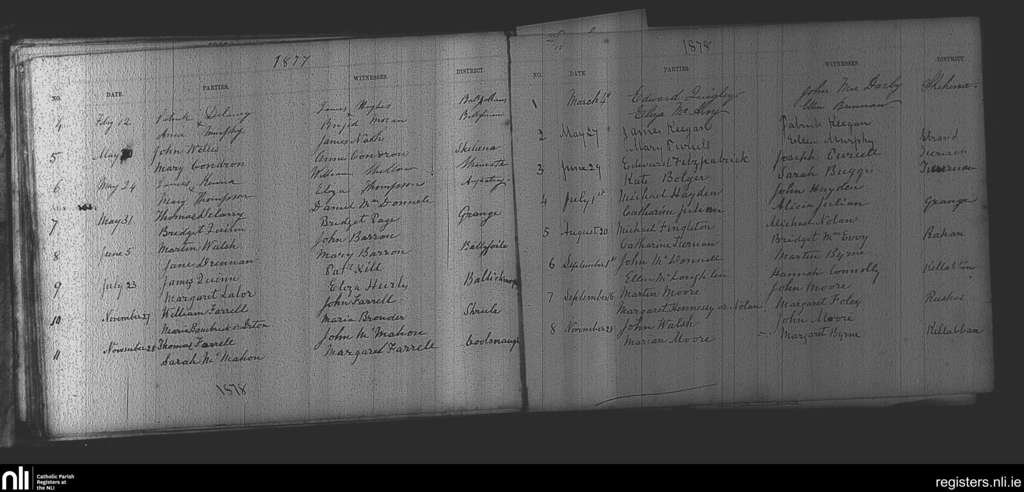 1877
NO. DATE. PARTIES. WITNESSES. DISTRICT.
4 Feby 12 Patrick Delany James Hughes
Anne Murphy Brigid Moran
5 May John Willis James Nash
Mary Condron Anne Condron Skehena
6 May 24 James William
Mary Thompson Eliza Thompson
7 May 31 Thomas Delany Daniel Mc Donnell
Bridget Quinn Bridget Page Grange
8 June 5 Martin Walsh John Barron
Jane Drennan Mary Barron Ballyfoile
9 July 23 James Quinn Patk Kill
Margaret Lalor Eliza Hurly
10 November 27 William Farrell John Farrell
Maria or Maria Brouder Shrule
11 November 28 Thomas Farrell John Mc Mahon
Sarah Mc Mahon Margaret Farrell
1878
1878
NO. DATE. PARTIES. WITNESSES. DISTRICT.
1 March 4th Edward Quigley John Mc Darby Skehena
Eliza Mc Evoy Ellen Brennan
2 May 27 James Keegan Patrick Keegan
Mary Ellen Murphy Strand
3 June 29 Edward Fitzpatrick Joseph
Kate Bolger Sarah Buggy
4 July 1st Michael Hayden John Hayden
Catharine Julian Alicia Julian Grange
5 August 20 Michael Fingleton Michael Nolan
Catharine Tiernan Bridget Mc Evoy Rahan
6 September 1st John Mc Donnell Martin Byrne
Ellen Mc Loughlin Hannah Connolly
7 September 16 Martin Moore John Moore
Margaret Hennessy or Nolan Margaret Foley
8 November 28 John Walsh John Moore
Marian Moore Margaret Byrne Killabban
nli
Catholic Parish
Registers at
the NLI
registers.nli.ie